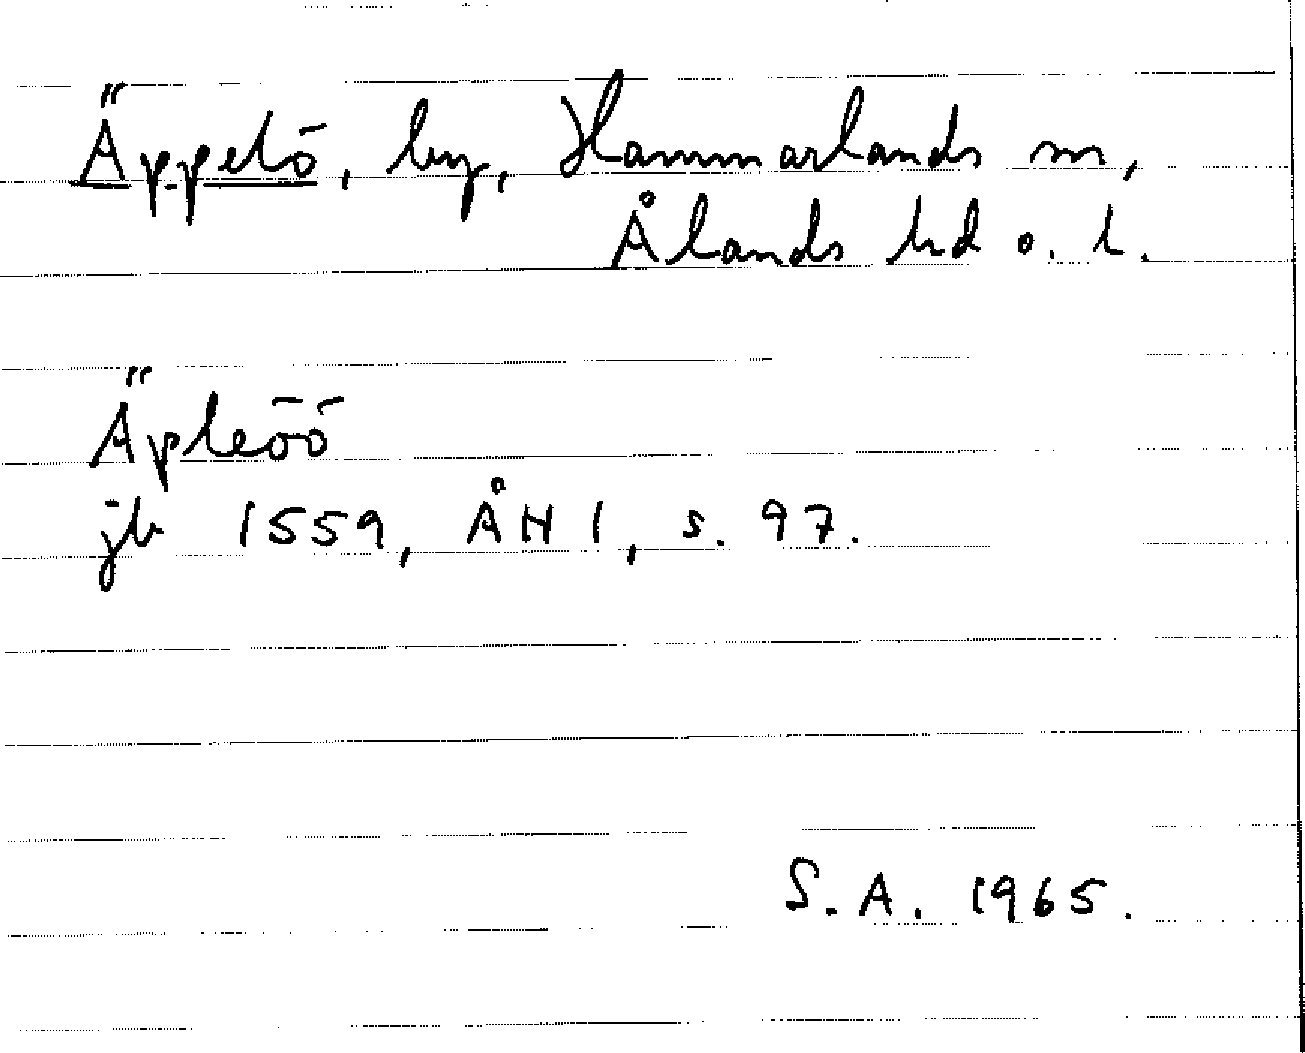 Äppelö, by, Hammarlands sn,
Ålands hd o. l.
Äpleöö
jb 1559, ÅH 1, s. 97.
S.A. 1965.